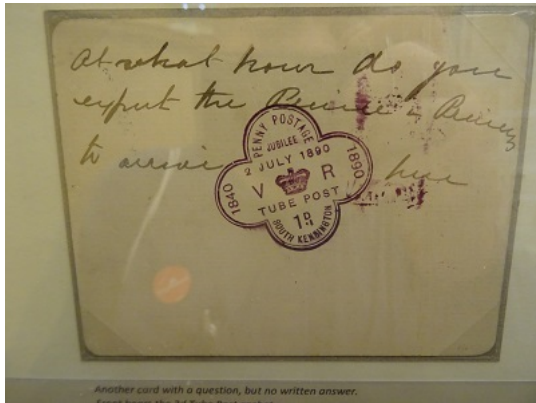 At what hour do you
expect the Prince &
to arrive here
PENNY POSTAGE
JUBILEE
2 JULY 1890
1840
V R
1890
TUBE POST
1D
SOUTH KENSINGTON
Another card with a question, but no written answer.